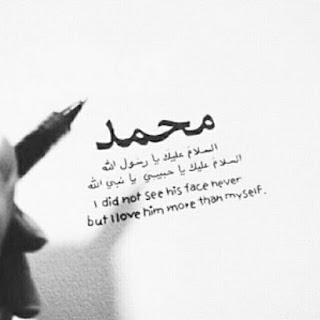 محمد
السلام عليك يا رسول الله
السلام عليك يا حبيبي يا نبي الله
I did not see his face never
but I love him more than myself.